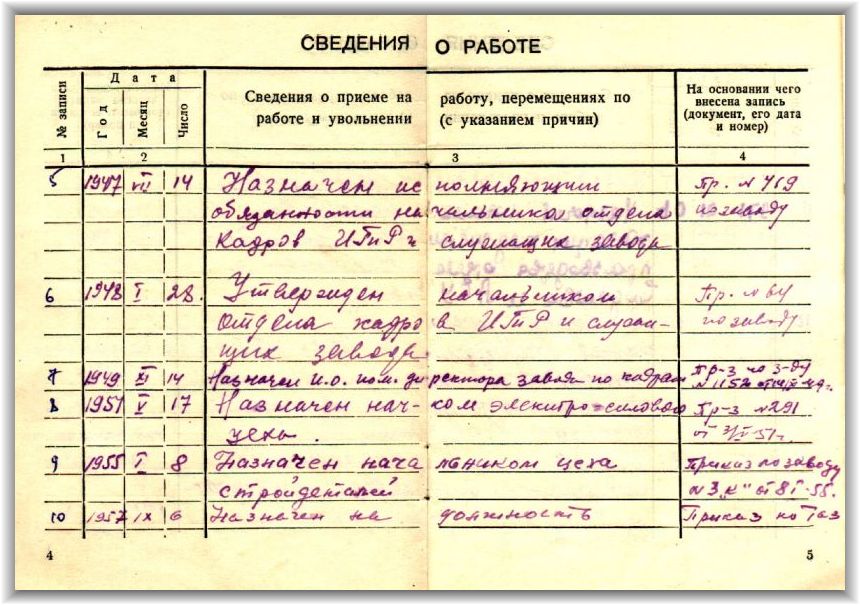 СВЕДЕНИЯ О РАБОТЕ
№ записи
Дата
Год
Месяц
Число
Сведения о приеме на работу, перемещениях по
работе и увольнении (с указанием причин)
На основании чего
внесена запись
(документ, его дата
и номер)
1 2 3 4
5 1947 VII 14 Назначен исполняющим Пр. №
обязанности начальника отдела по заводу
кадров ИТиР и служащих завода
6 1948 I 28. Утвержден начальником Пр. № 64
отдела кадров ИТиР и служа- по заводу
щих завода
7 1949 XI 14 Назначен и.о. пом. директора завода по кадрам Пр-з по з-ду
8 1951 V 17 Назначен нач-ком электро-силового Пр-з № 291
цеха. от
9 1955 I 8 Назначен начальником цеха Приказ по заводу
стройдеталей № 3 „к" от 8/I-55.
10 1957 IX 6 Назначен на должность Приказ по
4
5